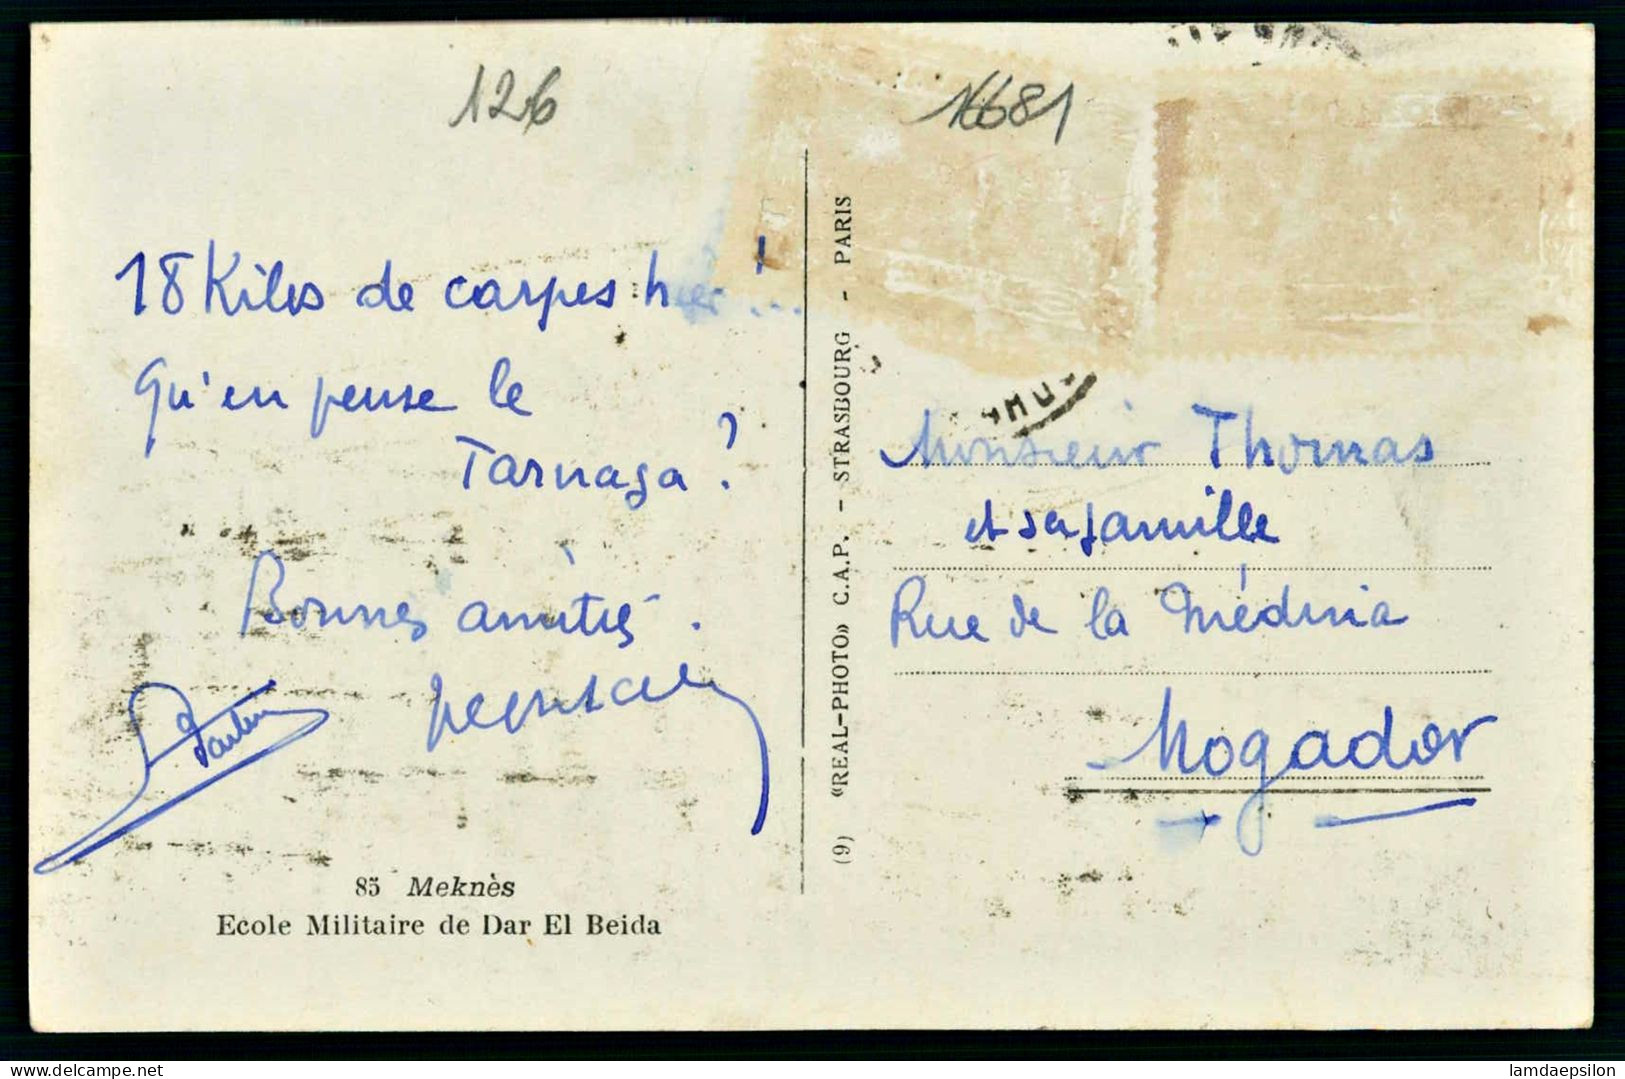 126
16681
18 Kilos de carpes hier !...
Qu'en pense le
Tarnaga ?
Bonnes amitiés.
85 Meknès
Ecole Militaire de Dar El Beida
(9) «REAL-PHOTO» C.A.P. - STRASBOURG - PARIS
Monsieur Thomas
et sa famille
Rue de la Médina
Mogador
delcampe.net
lamdaepsilon